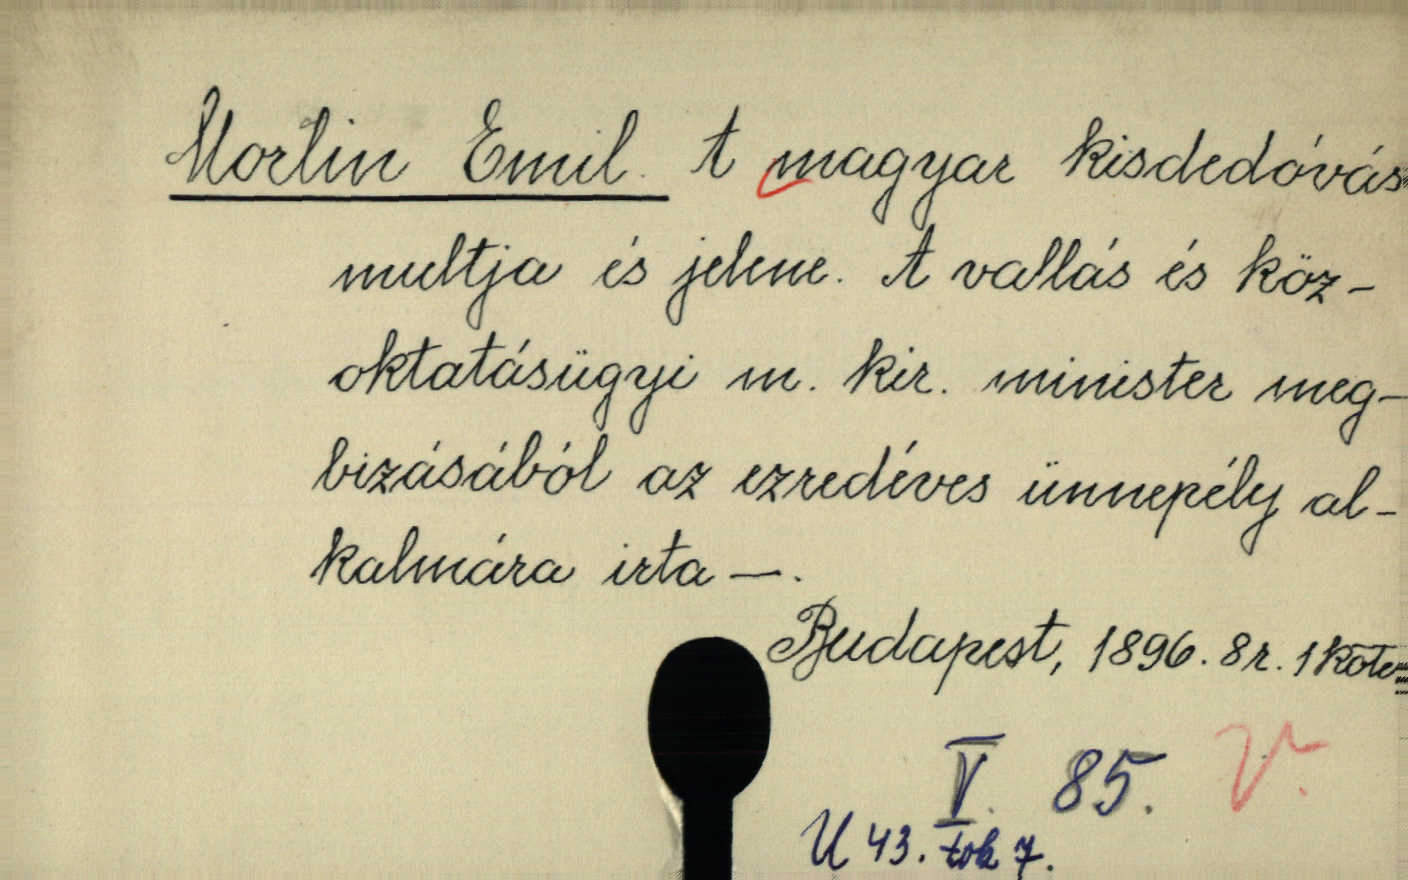 Morlin Emil. A magyar kisdedóvás
multja és jelene. A vallás és köz-
oktatásügyi m. kir. minister meg-
bizásából az ezredéves ünnepély al-
kalmára irta —.
Budapest, 1896. 8r. 1 Köte
V. 85. V.
U 43. tok 7.